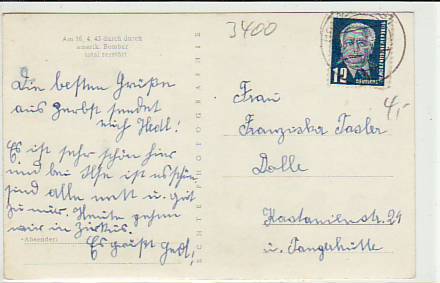 3400
Am 16. 4. 45 durch durch
amerik. Bomber
total zerstört
Die besten Grüße
aus Zerbst sendet
euch Hedl!
Es ist sehr schön hier
und bei Ilse ist es schön
sind alle nett u. gut
zu mir. Heute gehen
wir in Zirkus.
Es grüßt Hedl,
-Absender:
ECHTE PHOTOGRAPHIE
12
DEUTSCHE
4,-
Frau
Franziska Tasler
Dolle
Kastanienstr. 29
u. Tangerhütte